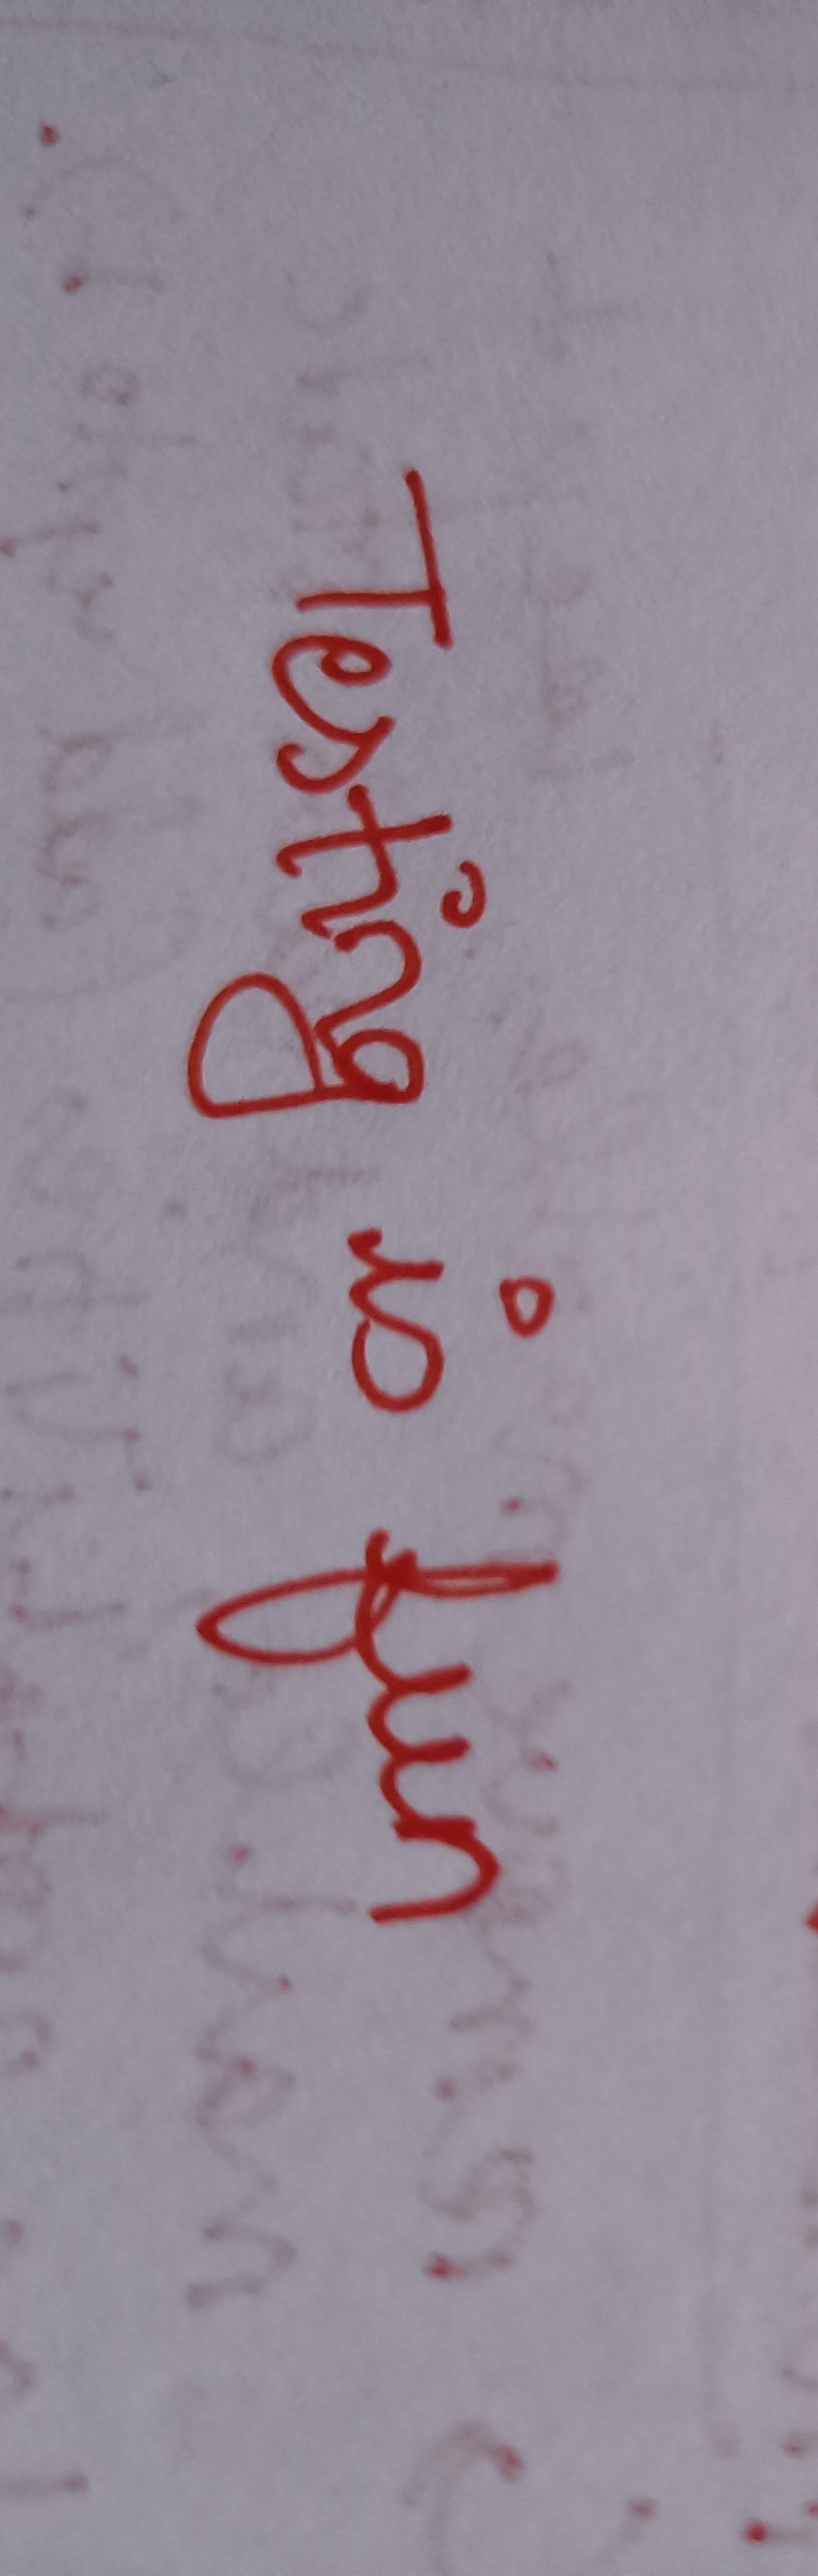 Testing is fun